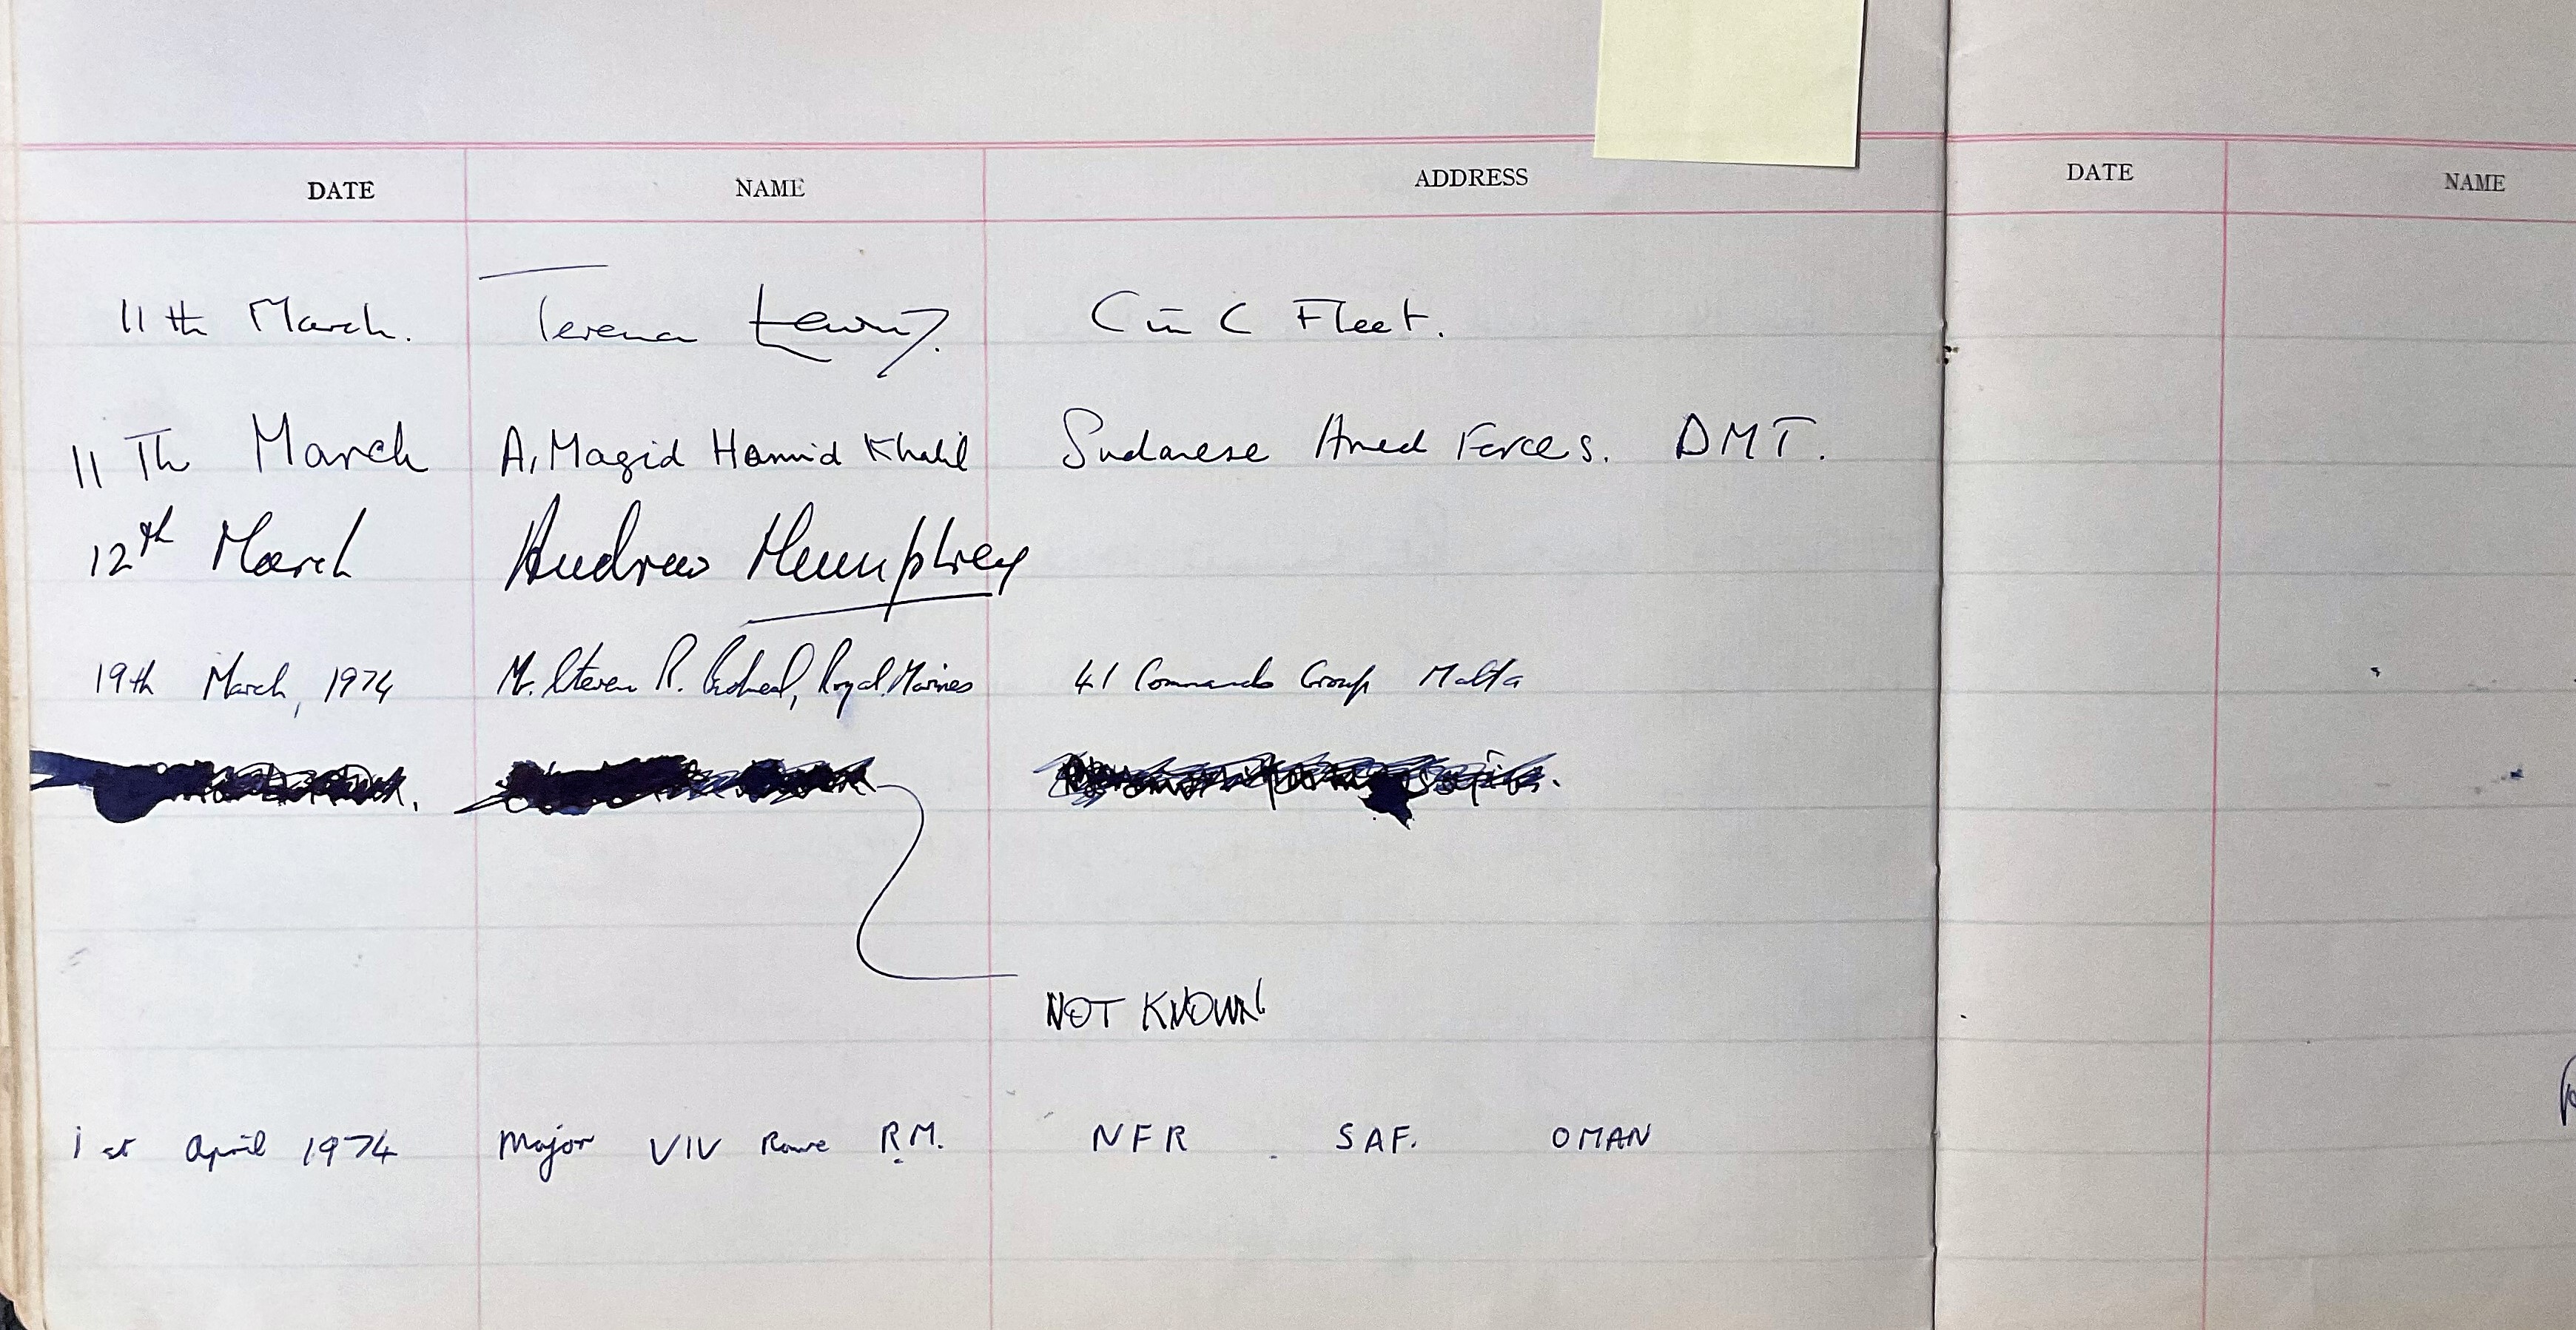 DATE NAME ADDRESS DATE NAME
11th March. Terence Lewin. C in C Fleet.
11Th March A. Magid Hamid Khalil Sudanese Armed Forces. DMT.
12th March Andrew Humphrey
19th March, 1974 Mr. Steven R. Royal Marines 41 Commando Group Malta
NOT KNOWN!
1st April 1974 Major VIV Rowe R.M. NFR . SAF. OMAN